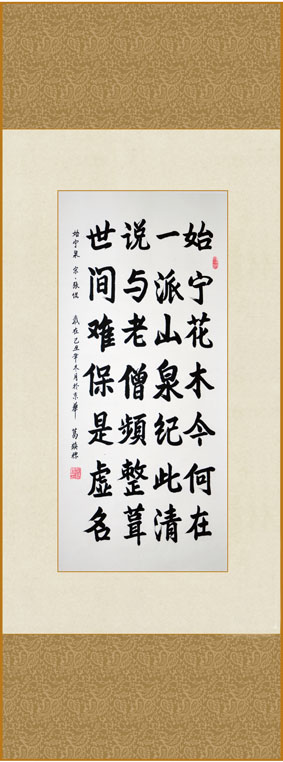 始宁花木今何在
一派山泉纪此清
说与老僧频整葺
世间难保是虚名
始宁泉 宋·张侃 岁在己丑年